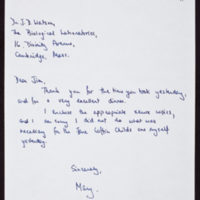 Dr. J.D. Watson,
The Biological Laboratories,
16 Divinity Avenue,
Cambridge, Mass.
Dear Jim,
Thank you for the time you took yesterday,
and for a very excellent dinner.
I enclose the appropriate reserve copies,
and I am sorry I did not do what was
necessary for the Jane Coffin Childs one myself
yesterday.
Sincerely,
Mary.